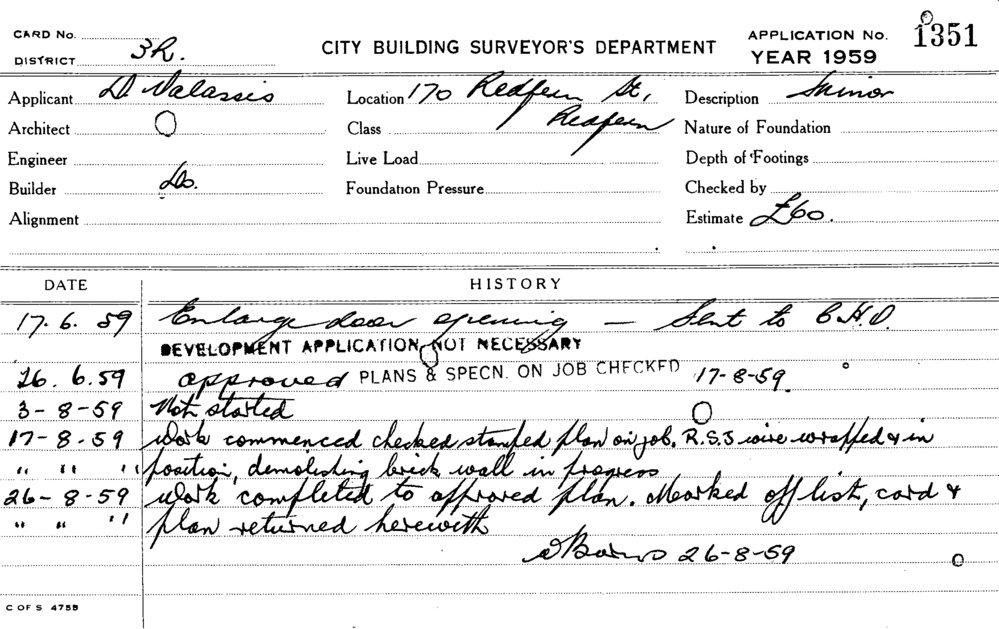 CARD No.
DISTRICT 3R.
CITY BUILDING SURVEYOR'S DEPARTMENT
APPLICATION No. 1351
YEAR 1959
Applicant D Valassis
Location 170 Redfern St,
Redfern
Description Minor
Architect
Class
Nature of Foundation
Engineer
Live Load
Depth of Footings
Builder Do.
Foundation Pressure
Checked by
Alignment
Estimate £60.
DATE HISTORY
17.6.59 Enlarge door opening – Sent to C.H.O.
DEVELOPMENT APPLICATION NOT NECESSARY
26.6.59 approved PLANS & SPECN. ON JOB CHECKED 17-8-59
3-8-59 Not started
17-8-59 Work commenced checked stamped plan on job. R.S.J wire wrapped & in
" " " position, demolishing brick wall in progress
26-8-59 Work completed to approved plan. Marked off list, card &
" " " plan returned herewith
26-8-59
C OF S 475B